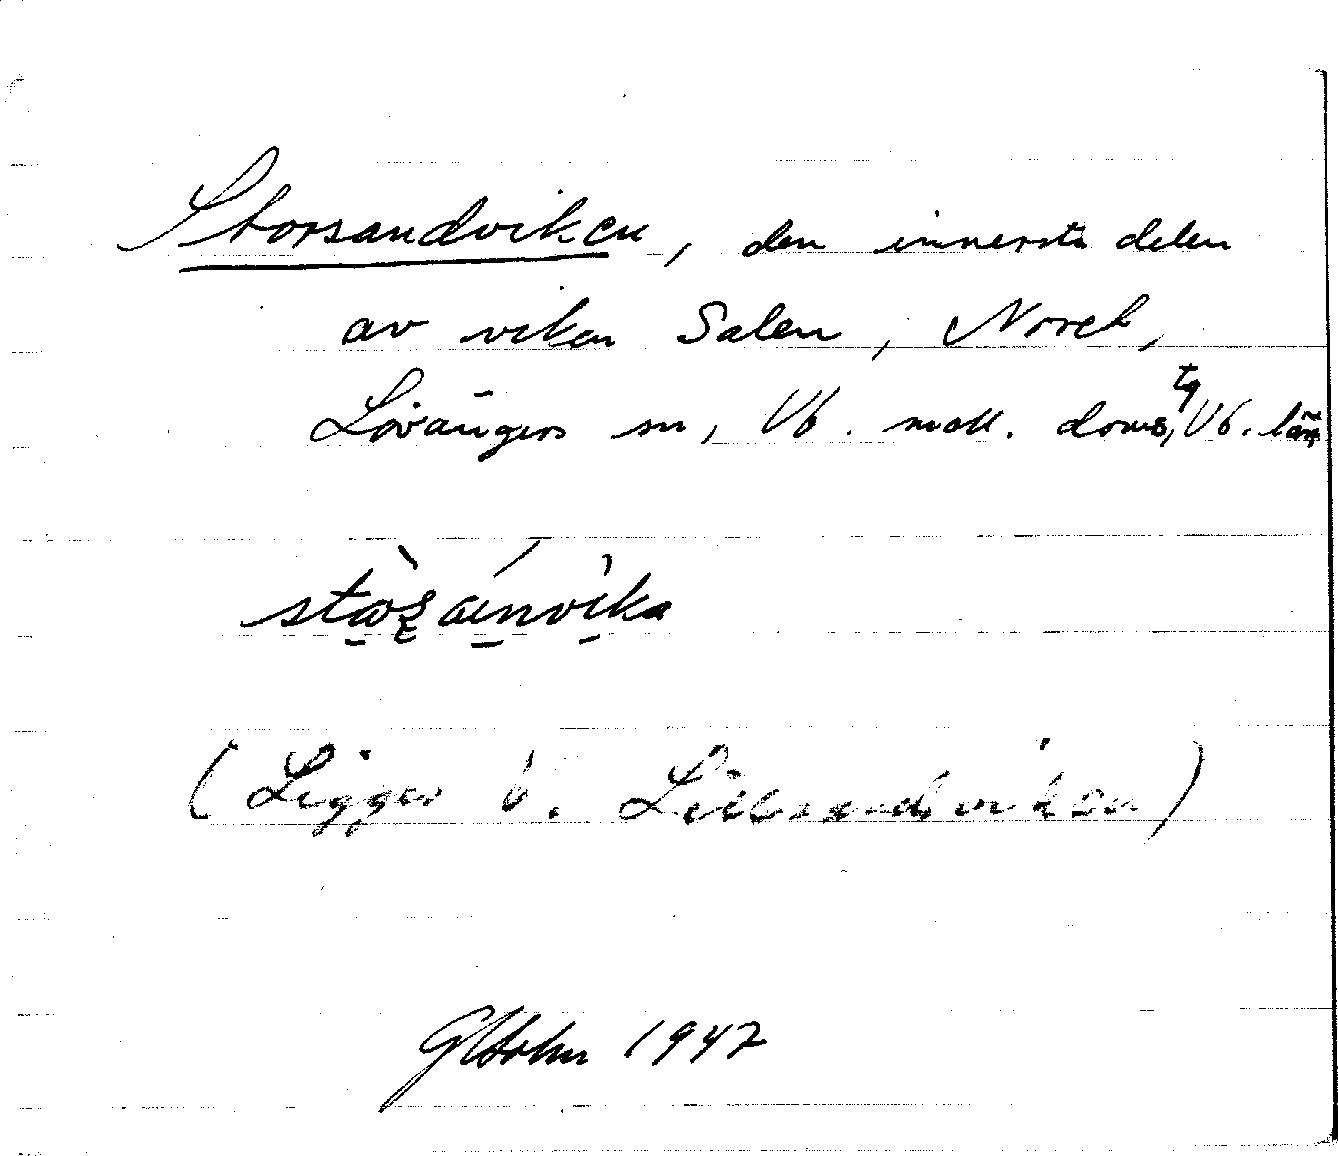 Storsandviken, den innersta delen
av viken Salen, Noret,
Lövångers sn, Vb. mell. doms,tg Vb. län
(Ligger V. Lillsandviken)
1947